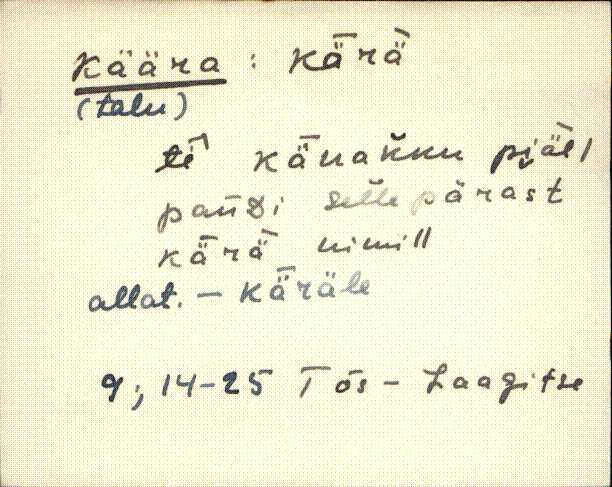 Käära : kǟrä̀
(talu)
tē kǟnakku pi̯äl
pańDi selle pärast
kǟrä̀ nimill
allat. – kǟräle
9; 14–25 Tõs – Laagitse